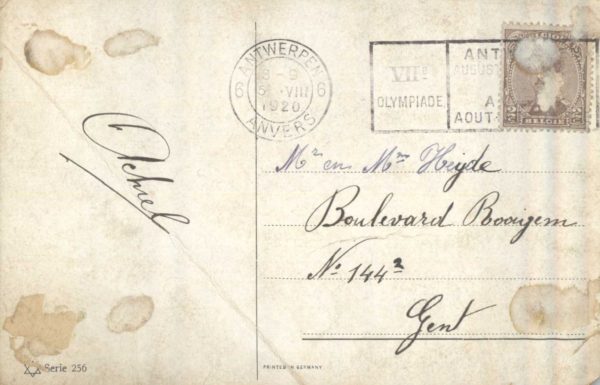 Achiel
Mr en Mme Heyde
Boulevard Booigem
No 144²
Gent
ANTWERPEN
6 8-9 6
5 VIII
1920
ANVERS
VIIe
OLYMPIADE
ANT
AUGUST
A
AOUT
BELGIE
Serie 256
PRINTED IN GERMANY